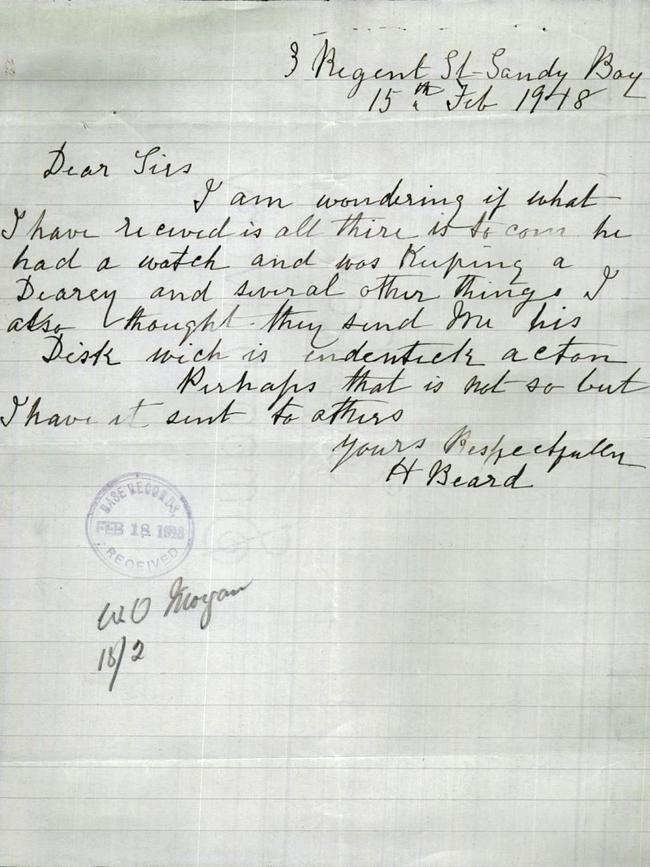 3 Regent St Sandy Bay
15th Feb 1948
Dear Sirs
I am wondering if what
I have recived is all thire is to com he
had a watch and was Keeping a
Dearey and several other things I
also thought they send Me his
Disk wich is indentick acton
Perhaps that is not so but
I have it sent to others
yours Respectfully
H Beard
BASE RECORDS
FEB 18
RECEIVED
WO Morgan
18/2